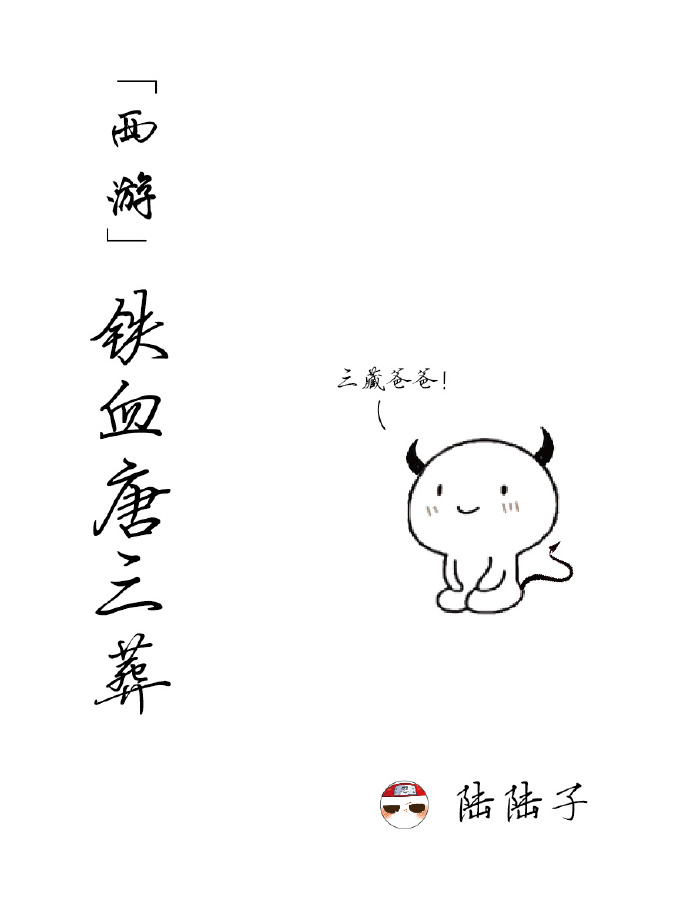 「西游」铁血唐三葬
三藏爸爸!
陆陆子